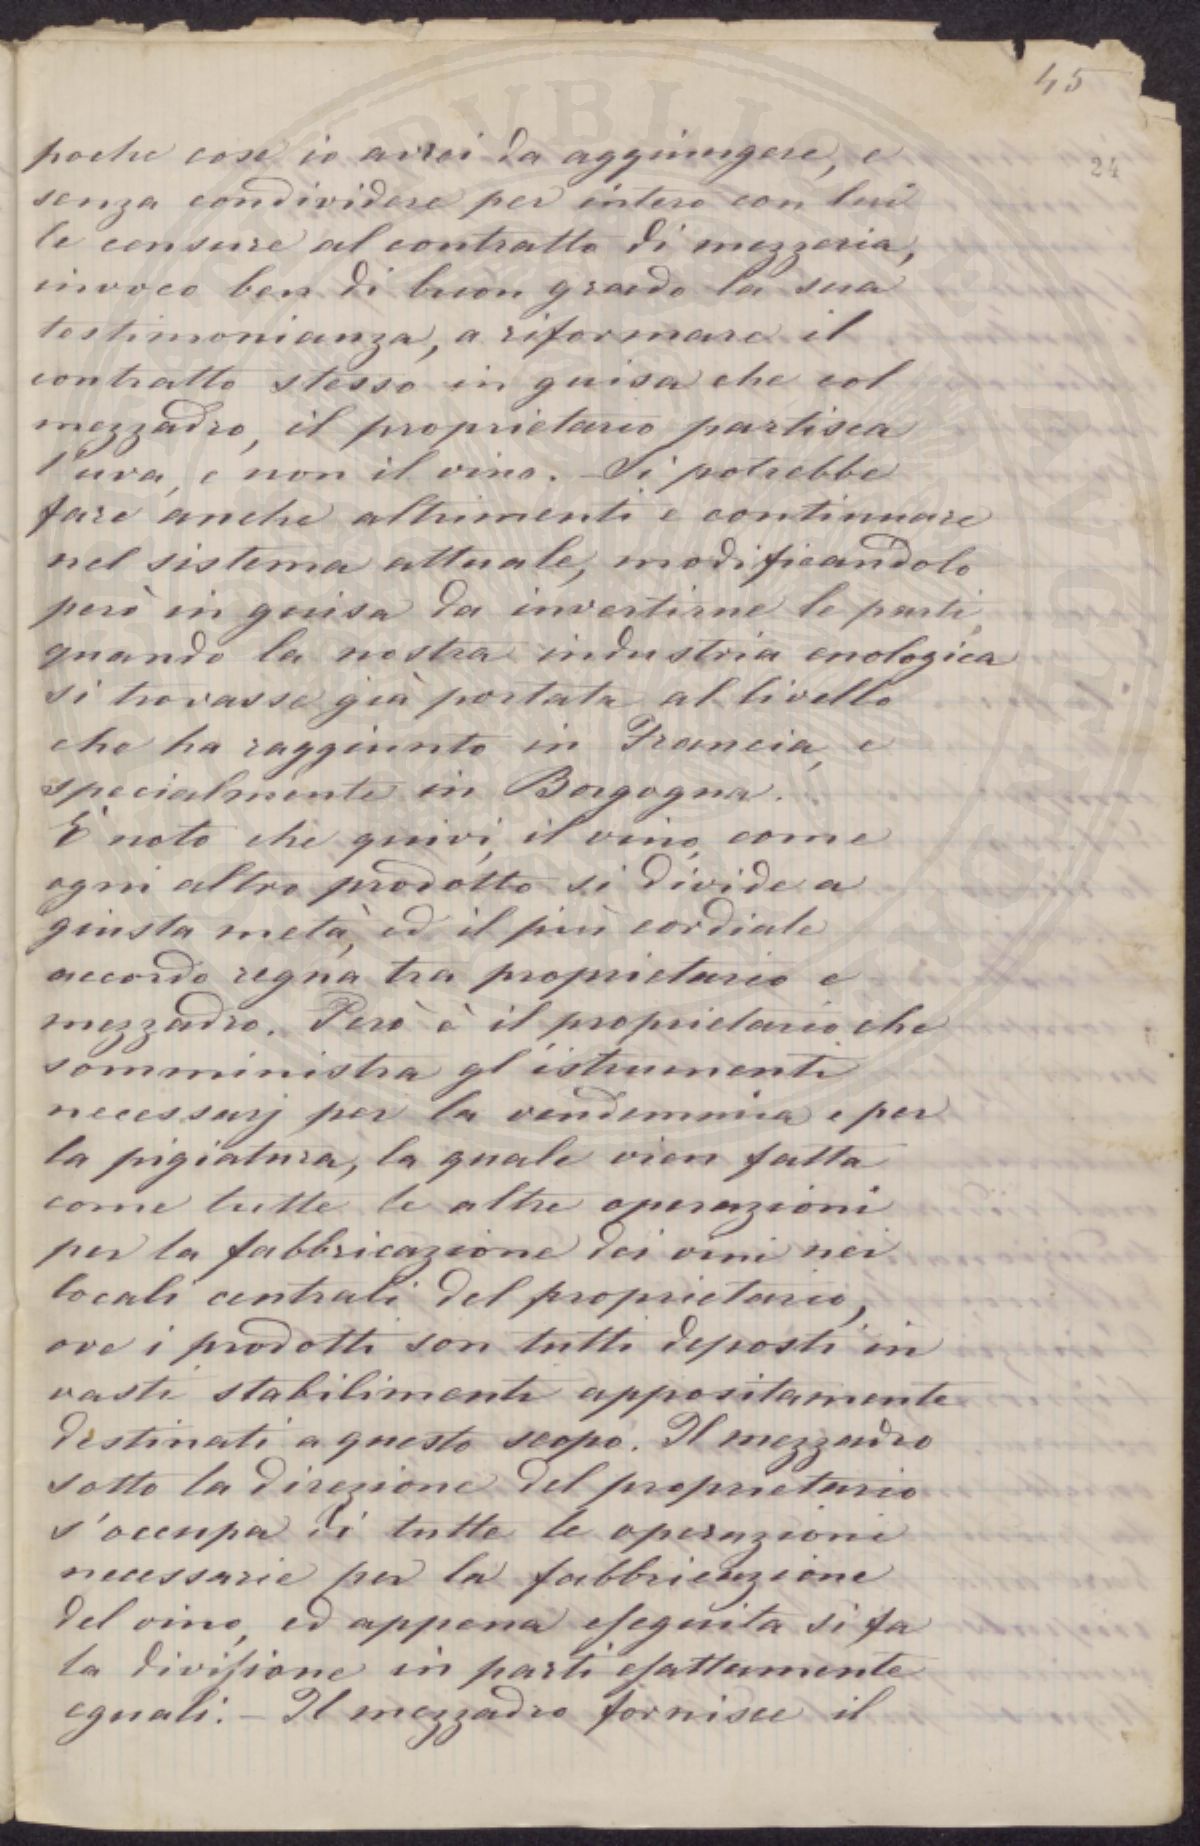 45
24
poche cose io avrei da aggiungere, e
senza condividere per intero con lui
le censure al contratto di mezzeria,
invoco ben di buon grado la sua
testimonianza, a riformare il
contratto stesso in guisa che col
mezzadro, il proprietario partisca
l'uva, e non il vino. – Si potrebbe
fare anche altrimenti e continuare
nel sistema attuale, modificandolo
però in guisa da invertirne le parti,
quando la nostra industria enologica
si trovasse già portata al livello
che ha raggiunto in Francia, e
specialmente in Borgogna.
È noto che quivi, il vino, come
ogni altro prodotto si divide a
giusta metà, ed il più cordiale
accordo regna tra proprietario e
mezzadro. Però è il proprietario che
somministra gl'istrumenti
necessarj per la vendemmia e per
la pigiatura, la quale vien fatta
come tutte le altre operazioni
per la fabbricazione dei vini nei
locali centrali del proprietario,
ove i prodotti son tutti deposti in
vasti stabilimenti appositamente
destinati a questo scopo. Il mezzadro
sotto la direzione del proprietario
s'occupa di tutte le operazioni
necessarie per la fabbricazione
del vino, ed appena eseguita si fa
la divisione in parti esattamente
eguali. – Il mezzadro fornisce il